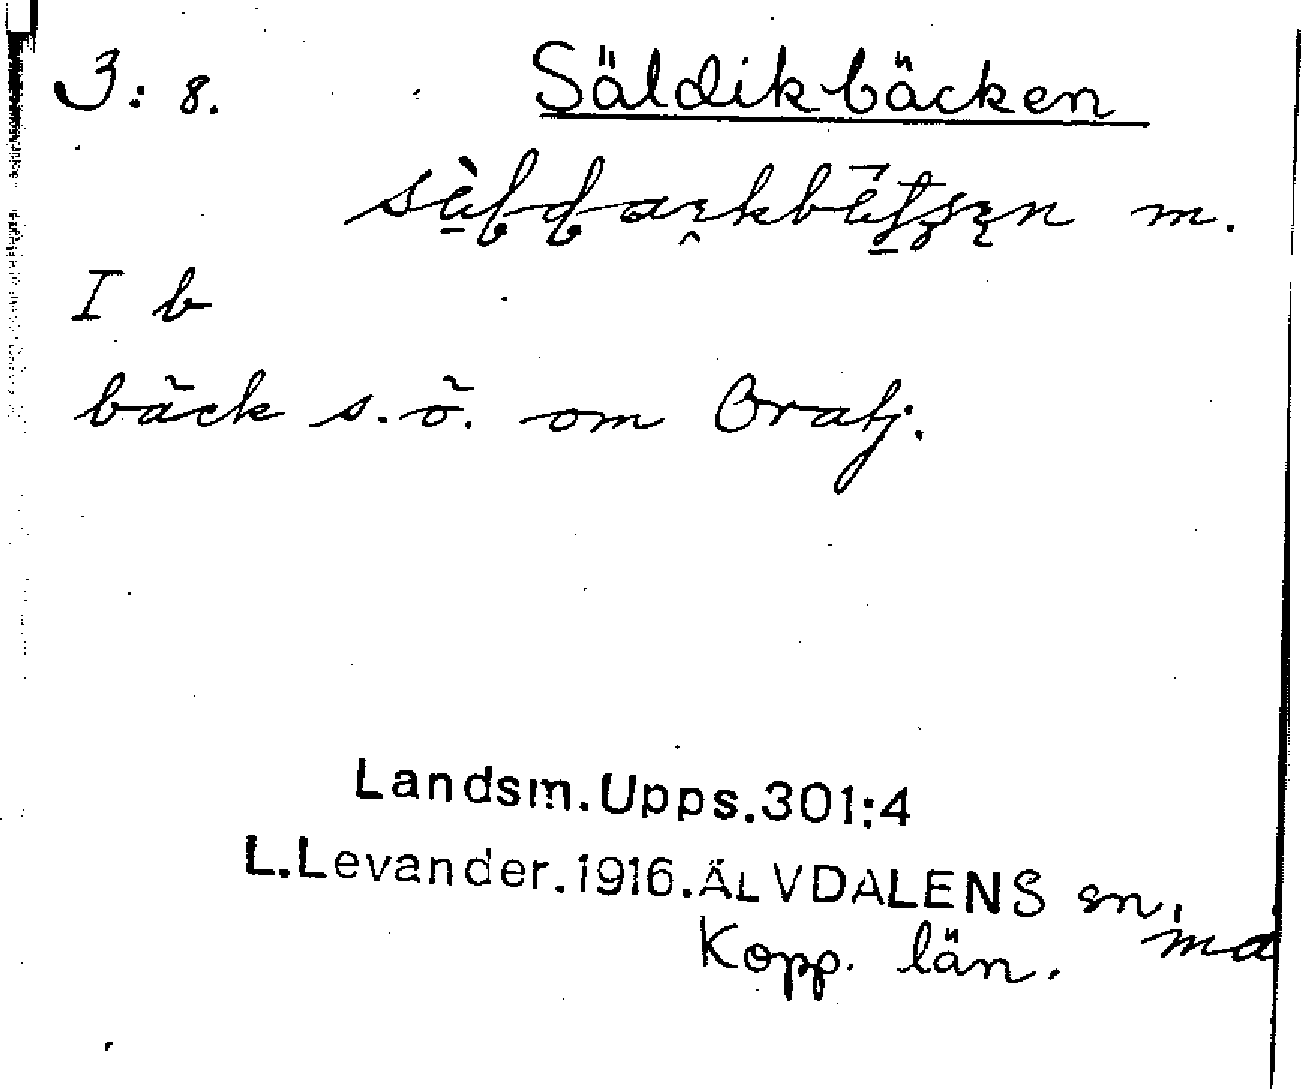 3: 8. Säldikbäcken
m.
I b
bäck s.ö. om Oratj.
Landsm.Upps.301:4
L.Levander.1916.ÄLVDALENS sn.
Kopp. län. må